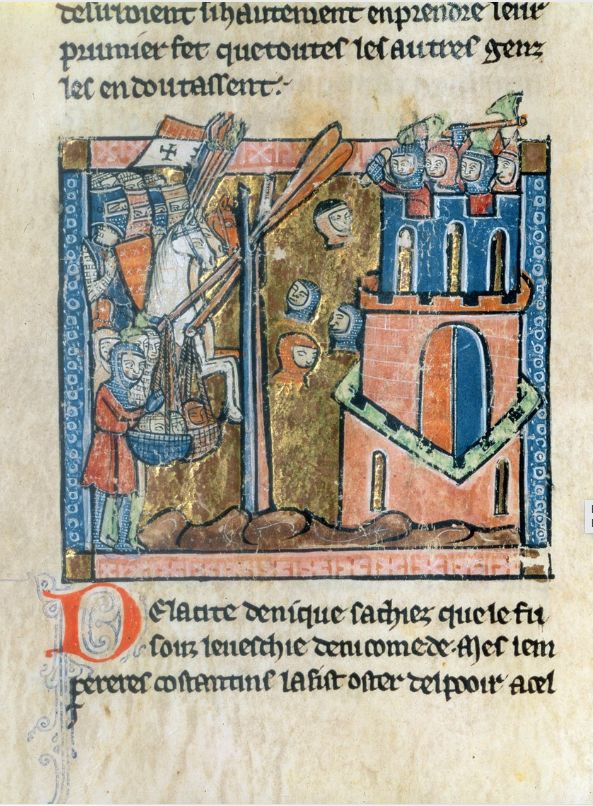 desirroient si hautement enprendre leur
prumier fet que toutes les autres genz
les en doutassent.
DE la cite de nique sachiez que le fu
souz leueschie de nicomede. Mes lem
pereres costantins la fist oster del pooir a cel